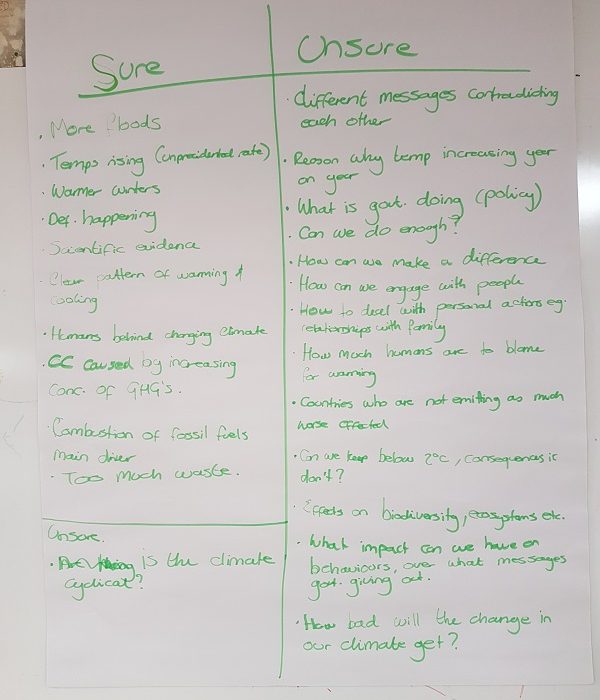 Sure
. More floods
• Temps rising (unprecidented rate)
• Warmer winters
• Def. happening
• Scientific evidence
• Clear pattern of warming &
cooling
• Humans behind changing climate
• CC caused by increasing
conc. of GHG's.
• Combustion of fossil fuels
main driver
• Too much waste.
Unsure.
• is the climate
cyclical?
Unsure
• different messages contradicting
each other
• Reason why temp increasing year
on year
• What is govt. doing (policy)
• Can we do enough?
• How can we make a difference
• How can we engage with people
• How to deal with personal actions eg.
relationships with family
• How much humans are to blame
for warming
• Countries who are not emitting as much
worse effected
• Can we keep below 2°C, consequences if
don't?
• Effects on biodiversity, ecosystems etc.
• What impact can we have on
behaviours, over what messages
govt. giving out.
• How bad will the change in
our climate get?